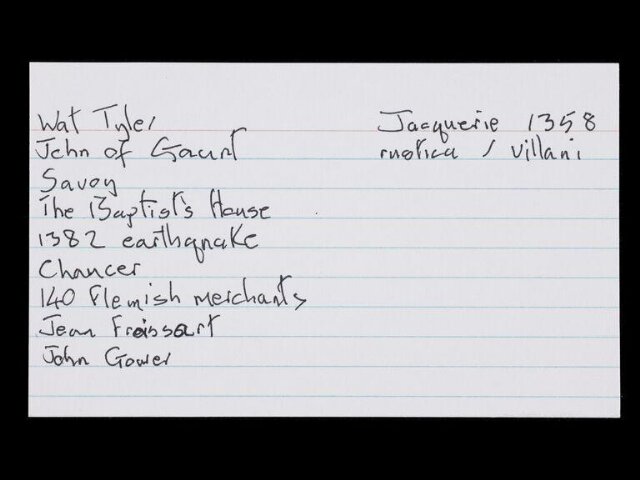 Wat Tyler
John of Gaunt
Savoy
The Baptist's House
1382 earthquake
Chaucer
140 Flemish merchants
Jean Froissart
John Gower
Jacquerie 1358
rustica / villani